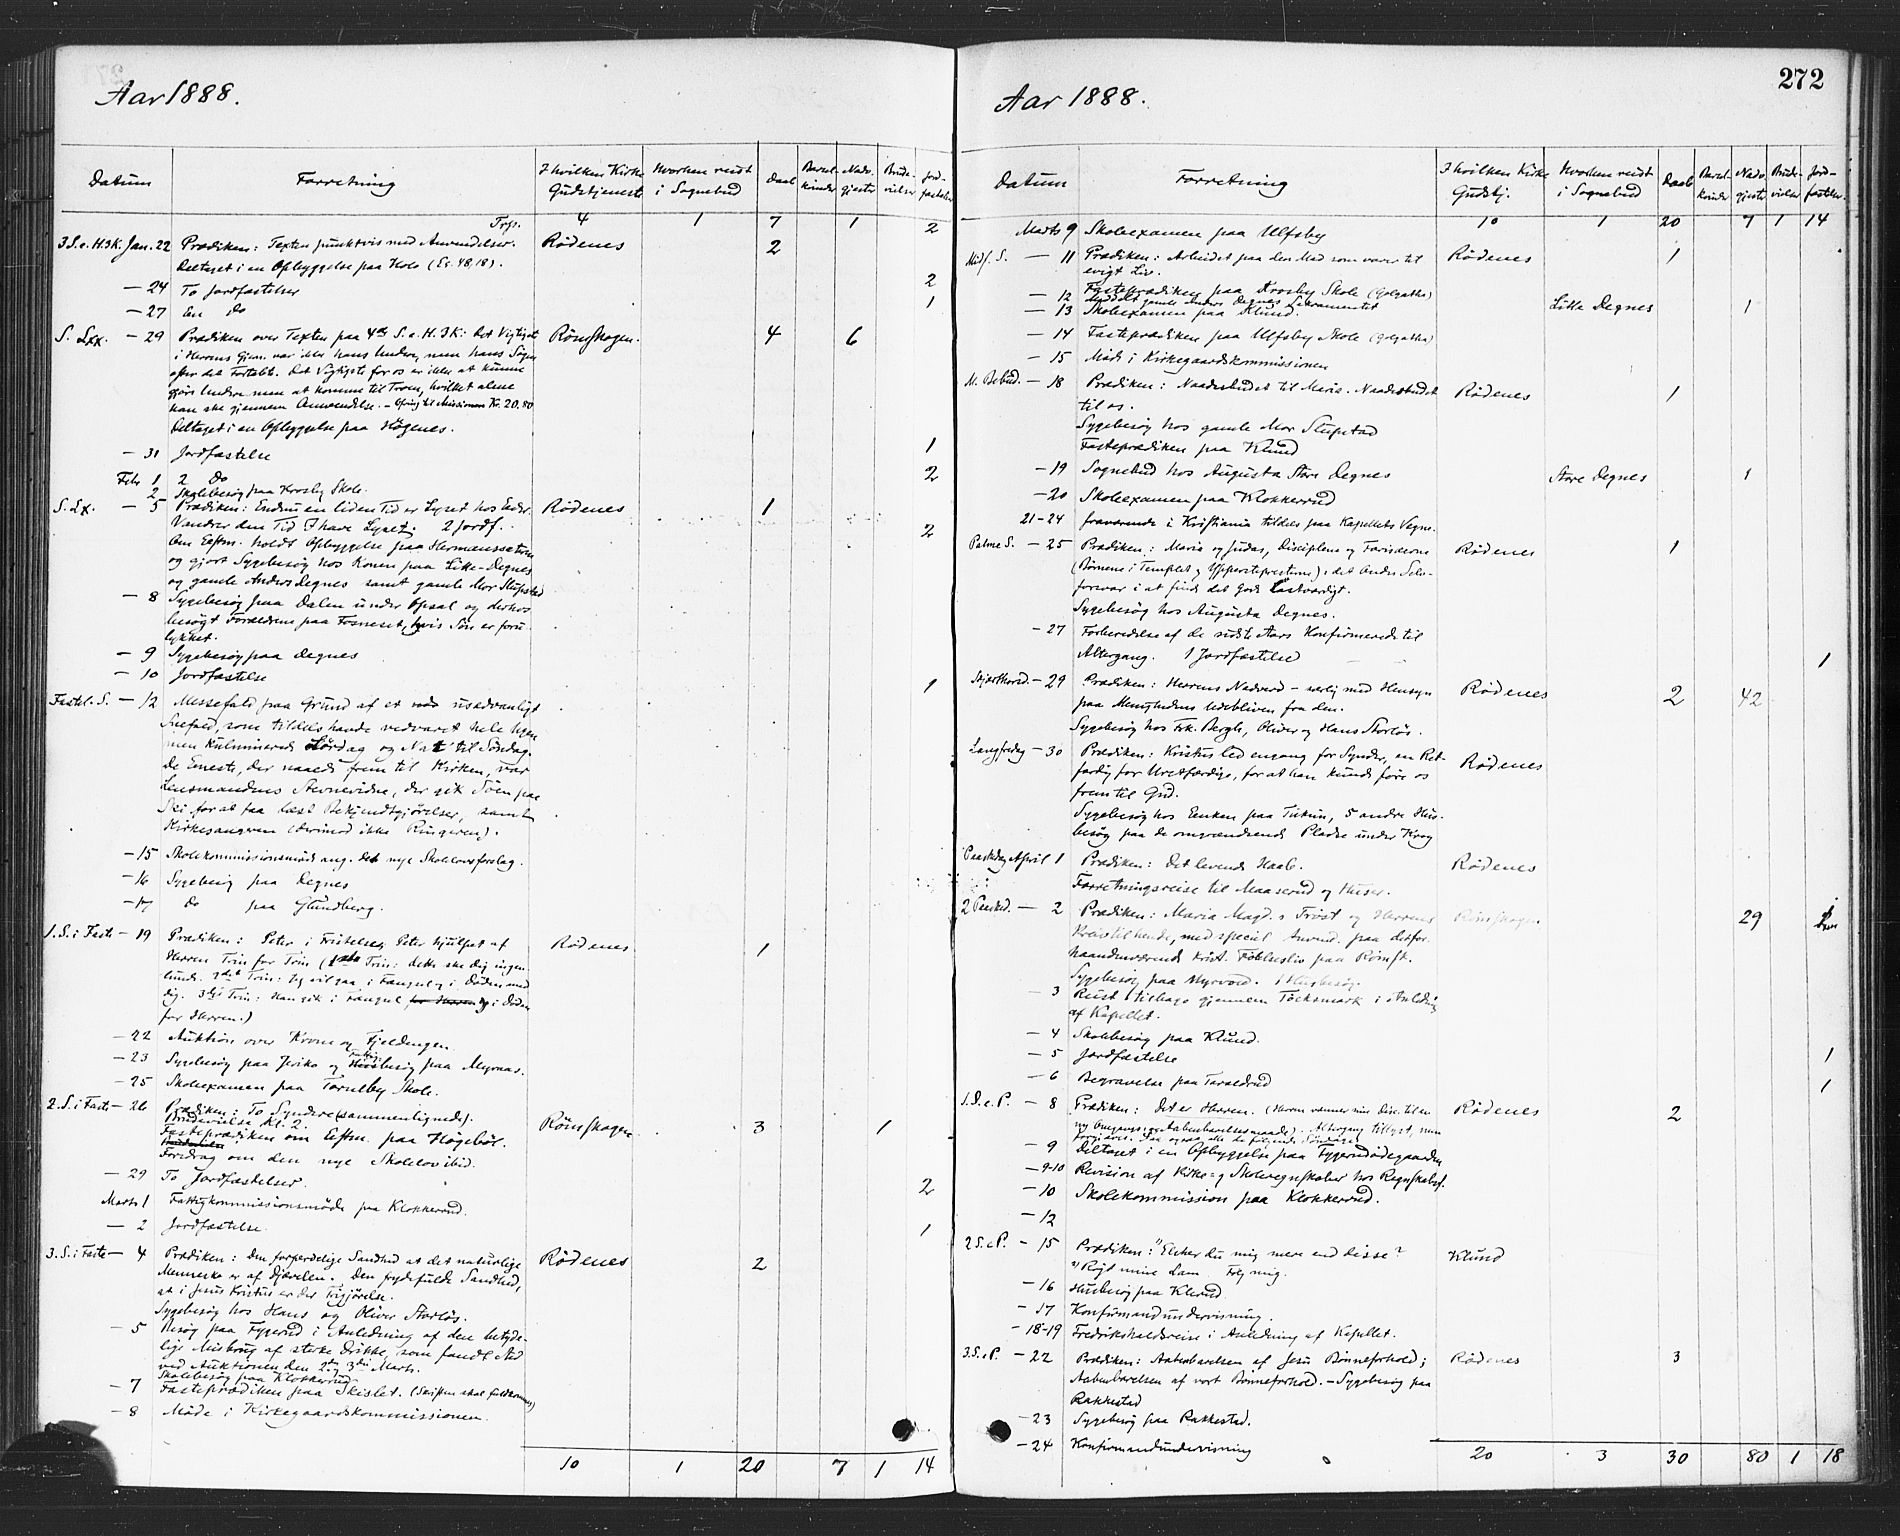 Aar 1888.
Datum
Forretning
I hvilken Kirke Gudstjeneste
Hvorhen reist i Sognebud
Daab
Barselkvinder
Nadv.gjester
Brudevielser
Jordfæstelser
Trsp. 4 1 7 1 2
3 S. e. H.3K. Jan. 22 Prædiken: Texten punktvis med Anvendelser. Rødenes 2
Deltaget i en Opbyggelse paa Kolo (Es. 48,18).
— 24 To Jordfæstelser 2
— 27 En Do 1
S. Lxx. — 29 Prædiken over Texten paa 4de S. e. H. 3K: Det Vigtigste Rømskogen. 4 6
i Herrens Gjern. var ikke hans Undere, men hans Sagen
efter det Fortalte. Det Vigtigste for os er ikke at kunne
gjøre Undere men at komme til Troen, hvilket alene
kan ske gjennem Anvendelse. — Ofring til Missionen Kr. 20.80
Deltaget i en Opbyggelse paa Høgenes.
— 31 Jordfæstelse 1
Febr 1 2 Do 2
2 Skolebesøg paa Krosby Skole.
S. Lx. — 5 Prædiken: Endnu en liden Tid er Lyset hos Eder. Rødenes 1
Vandrer den Tid I have Lyset. 2 Jordf. 2
Om Eftm. holdt Opbyggelse paa Hermanssætren
og gjort Sygebesøg hos Konen paa Litle-Degnes
og gamle Anders Degnes samt gamle Mor Slupstad
— 8 Sygebesøg paa Dalen under Opsal og derhos
besøgt Forældrene paa Fosneset, hvis Søn er foru-
lykket.
— 9 Sygebesøg paa Degnes
— 10 Jordfæstelse 1
Fastel. S. — 12 Messefald paa Grund af et usædvanligt
Snefald, som tildels havde vedvaret hele Ugen
men kulminerede Lørdag og Nat til Søndag.
De Eneste, der naaede frem til Kirken, var
Lensmandens Stevnevidne, der gik Søen paa
Ski for at faa læst Bekjendtgjørelser, samt
Kirkesangeren (derimod ikke Ringeren).
— 15 Skolekommissionsmøde ang. det nye Skolelovsforslag.
— 16 Sygebesøg paa Degnes
— 17 Do paa Glundberg.
1. S. i Faste — 19 Prædiken: Peter i Fristelse, Peter hjulpet af Rødenes 1
Herren Trin for Trin (1ste Trin: dette ske dig ingen-
lunde. 2det Trin: Jeg vil gaa i Fængsel og i Døden med
dig. 3die Trin: Han gik i Fængsel og i Døden
for Herren.)
— 22 Auktion over Krone og Fjeldengen.
— 23 Sygebesøg paa Jeriko og Fattigbesøg paa Myrnas.
— 25 Skoleexamen paa Taraldby Skole.
2. S. i Faste — 26 Prædiken: To Syndere (sammenlignede). Rømskogen 3 1
Brudevielse Kl. 2.
Fasteprædiken om Eftm. paa Høgebøl.
Foredrag om den nye Skolelov ibid.
— 29 To Jordfæstelser. 2
Marts 1 Fattigkommissionsmøde paa Klokkerud.
— 2 Jordfæstelse. 1
3. S. i Faste — 4 Prædiken: Den forfærdelige Sandhed at det naturlige Rødenes 2
Menneske er af Djævelen. Den frydefulde Sandhed,
at i Jesus Kristus er der Frigjørelse.
Sygebesøg hos Hans og Oliver Storløs.
— 5 Besøg paa Fygerud i Anledning af den betyde-
lige Misbrug af stærke Drikke, som fandt Sted
ved Auktionen den 2den og 3die Marts.
Skolebesøg paa Klokkerud
— 7 Fasteprædiken paa Skislet. (Skriften skal fuldkommes)
— 8 Møde i Kirkegaardskommissionen.
10 1 20 7 1 14
272
Aar 1888.
Datum
Forretning
I hvilken Kirke Gudstj.
Hvorhen reist i Sognebud
Daab
Barselkvinder
Nadv.gjester
Brudevielser
Jordfæstelser
10 1 20 7 1 14
Marts 9 Skoleexamen paa Ulfsby
Midf. S. — 11 Prædiken: Arbeidet paa den Mad som varer til Rødenes 1
evigt Liv.
— 12 Fasteprædiken paa Krosby Skole (Golgatha)
Meddelt gamle Anders Degnes Sakramentet Litle Degnes 1
— 13 Skoleexamen paa Klund.
— 14 Fasteprædiken paa Ulfsby Skole (Golgatha)
— 15 Møde i Kirkegaardskommissionen
M. Bebud. — 18 Prædiken: Naadesbudet til Maria. Naadesbudet Rødenes 1
til os.
Sygebesøg hos gamle Mor Slupstad
Fasteprædiken paa Klund
— 19 Sognebud hos Augusta Store Degnes Store Degnes 1
— 20 Skoleexamen paa Klokkerud
21-24 fraværende i Kristiania tildels paa Kapellets Vegne.
Palme S. — 25 Prædiken: Maria og Judas, Disciplene og Farisæerne Rødenes 1
(Børnene i Templet og Ypperstepræsterne): det Andres Selv-
forsvar i at finde det Gode Lastværdigt.
Sygebesøg hos Augusta Degnes.
— 27 Forberedelse af de sidste Aars Konfirmerede til
Altergang. 1 Jordfæstelse 1
Skjærthorsd. — 29 Prædiken: Herrens Nadverd — særlig med Hensyn Rødenes 2 42
paa Menighedens Udebliven fra den.
Sygebesøg hos Frk. Bergh, Oliver og Hans Storløs.
Langfredag — 30 Prædiken: Kristus led engang for Synder, en Ret- Rødenes
færdig for Uretfærdige, for at han kunde føre os
frem til Gud.
Sygebesøg hos Enken paa Tukun, 5 andre Hus-
besøg paa de omgrændsende Pladse under Krog
Paaskedag April 1 Prædiken: Det levende Haab. Rødenes
Forretningsreise til Maaserud og Huser.
2 Paasked. — 2 Prædiken: Maria Magd.s Trøst og Herrens Rømskogen. 29
Krav til hende, med special Anvend. paa det for-
haandenværende krist. Folkeliv paa Rømsk.
Sygebesøg paa Myrvold. 1 Husbesøg.
— 3 Reist tilbage gjennem Tocksmark i Anledning
af Kapellet.
— 4 Skolebesøg paa Klund.
— 5 Jordfæstelse 1
— 6 Begravelse paa Taraldrud 1
1. S. e. P. — 8 Prædiken: Det er Herren. (Herren vænner sine Disc. til en Rødenes 2
ny Omgangs- og Aabenbarelsesmaade). Altergang tillyst, men
forgjæves. Saa ogsaa alle de følgende Søndage.
— 9 Deltaget i en Opbyggelse paa Fygerudødegaarden
— 9-10 Revision af Kirke- og Skoleregnskaber hos Regnskabsf.
— 10 Skolekommission paa Klokkerud.
— 12
2 S. e P. — 15 Prædiken: "Elsker du mig mere end disse? Klund
Røgt mine Lam. Følg mig.
— 16 Husbesøg paa Klund
— 17 Konfirmandundervisning.
— 18-19 Fredrikshaldsreise i Anledning af Kapellet.
3. S. e P. — 22 Prædiken: Aabenbarelsen af Jesu Bønneforhold; Rødenes 3
Aabenbarelsen af vort Bønneforhold. — Sygebesøg paa
Rakkestad
— 23 Sygebesøg paa Rakkestad.
— 24 Konfirmandundervisning
20 3 30 80 1 18